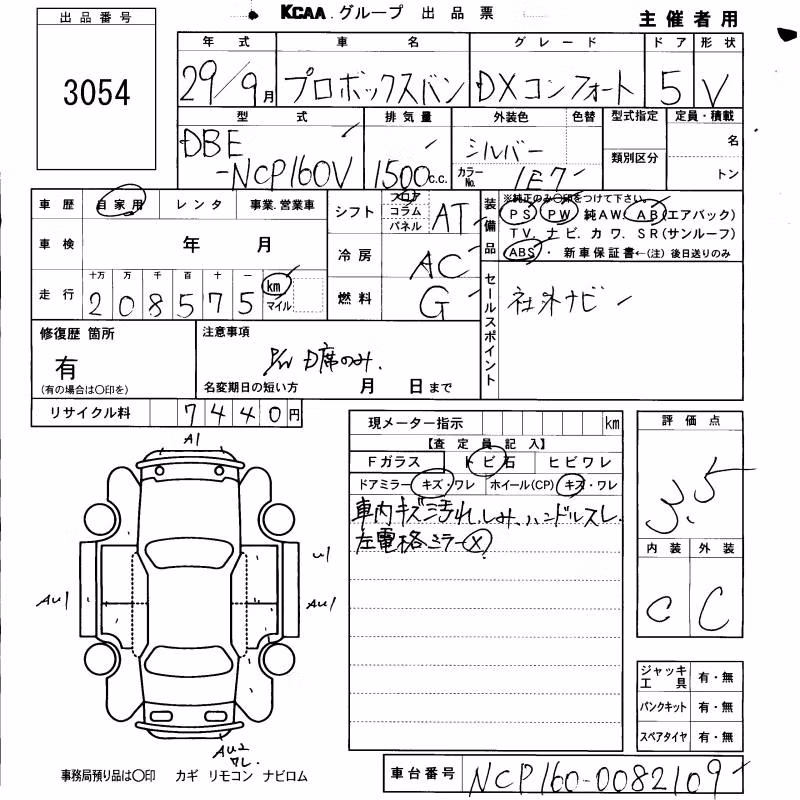 KCAA.グループ 出品票
主催者用
出品番号
3054
年式 車名 グレード ドア 形状
29/9月 プロボックスバン DXコンフォート 5 V
型式 排気量 外装色 色替 型式指定 定員・積載
DBE
-NCP160V 1500c.c. シルバー カラーNo. 1E7 類別区分 名 トン
車歴 自家用 レンタ 事業.営業車
車検 年 月
走行 十万 万 千 百 十 一
208575 km マイル
シフト フロア コラム パネル AT
冷房 AC
燃料 G
装備品 ※純正のみ〇印をつけて下さい。
PS PW 純AW. AB(エアバック)
TV. ナビ. カワ. SR(サンルーフ)
ABS・ 新車保証書←(注)後日送りのみ
セールスポイント
社外ナビ
修復歴 箇所
有
(有の場合は〇印を)
注意事項
P/W D席のみ.
名変期日の短い方 月 日まで
リサイクル料 7440円
現メーター指示 km
【査定員記入】
Fガラス トビ石 ヒビワレ
ドアミラー キズ・ワレ ホイール(CP) キズ・ワレ
車内キズ汚れ.しみ.ハンドルスレ.
左電格ミラー×
評価点
3.5
内装 外装
C C
A1
U1
AU1
AU1
AU2
ワレ.
ジャッキ工具 有・無
パンクキット 有・無
スペアタイヤ 有・無
事務局預り品は〇印 カギ リモコン ナビロム
車台番号 NCP160-0082109